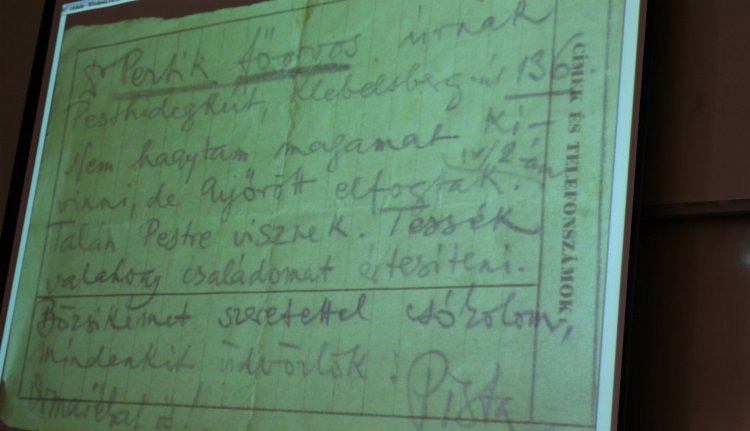 Pertik főorvos úrnak
Pesthidegkút, Klebelsberg u. 136.
Nem hagytam magamat ki-
vinni, de Győrött elfogtak. IV/2-án
Talán Pestre visznek. Tessék
valahogy családomat értesíteni.
Bözsikémet szeretettel csókolom,
mindenkit üdvözlök:
Pista
is!
CÍMEK ÉS TELEFONSZÁMOK: